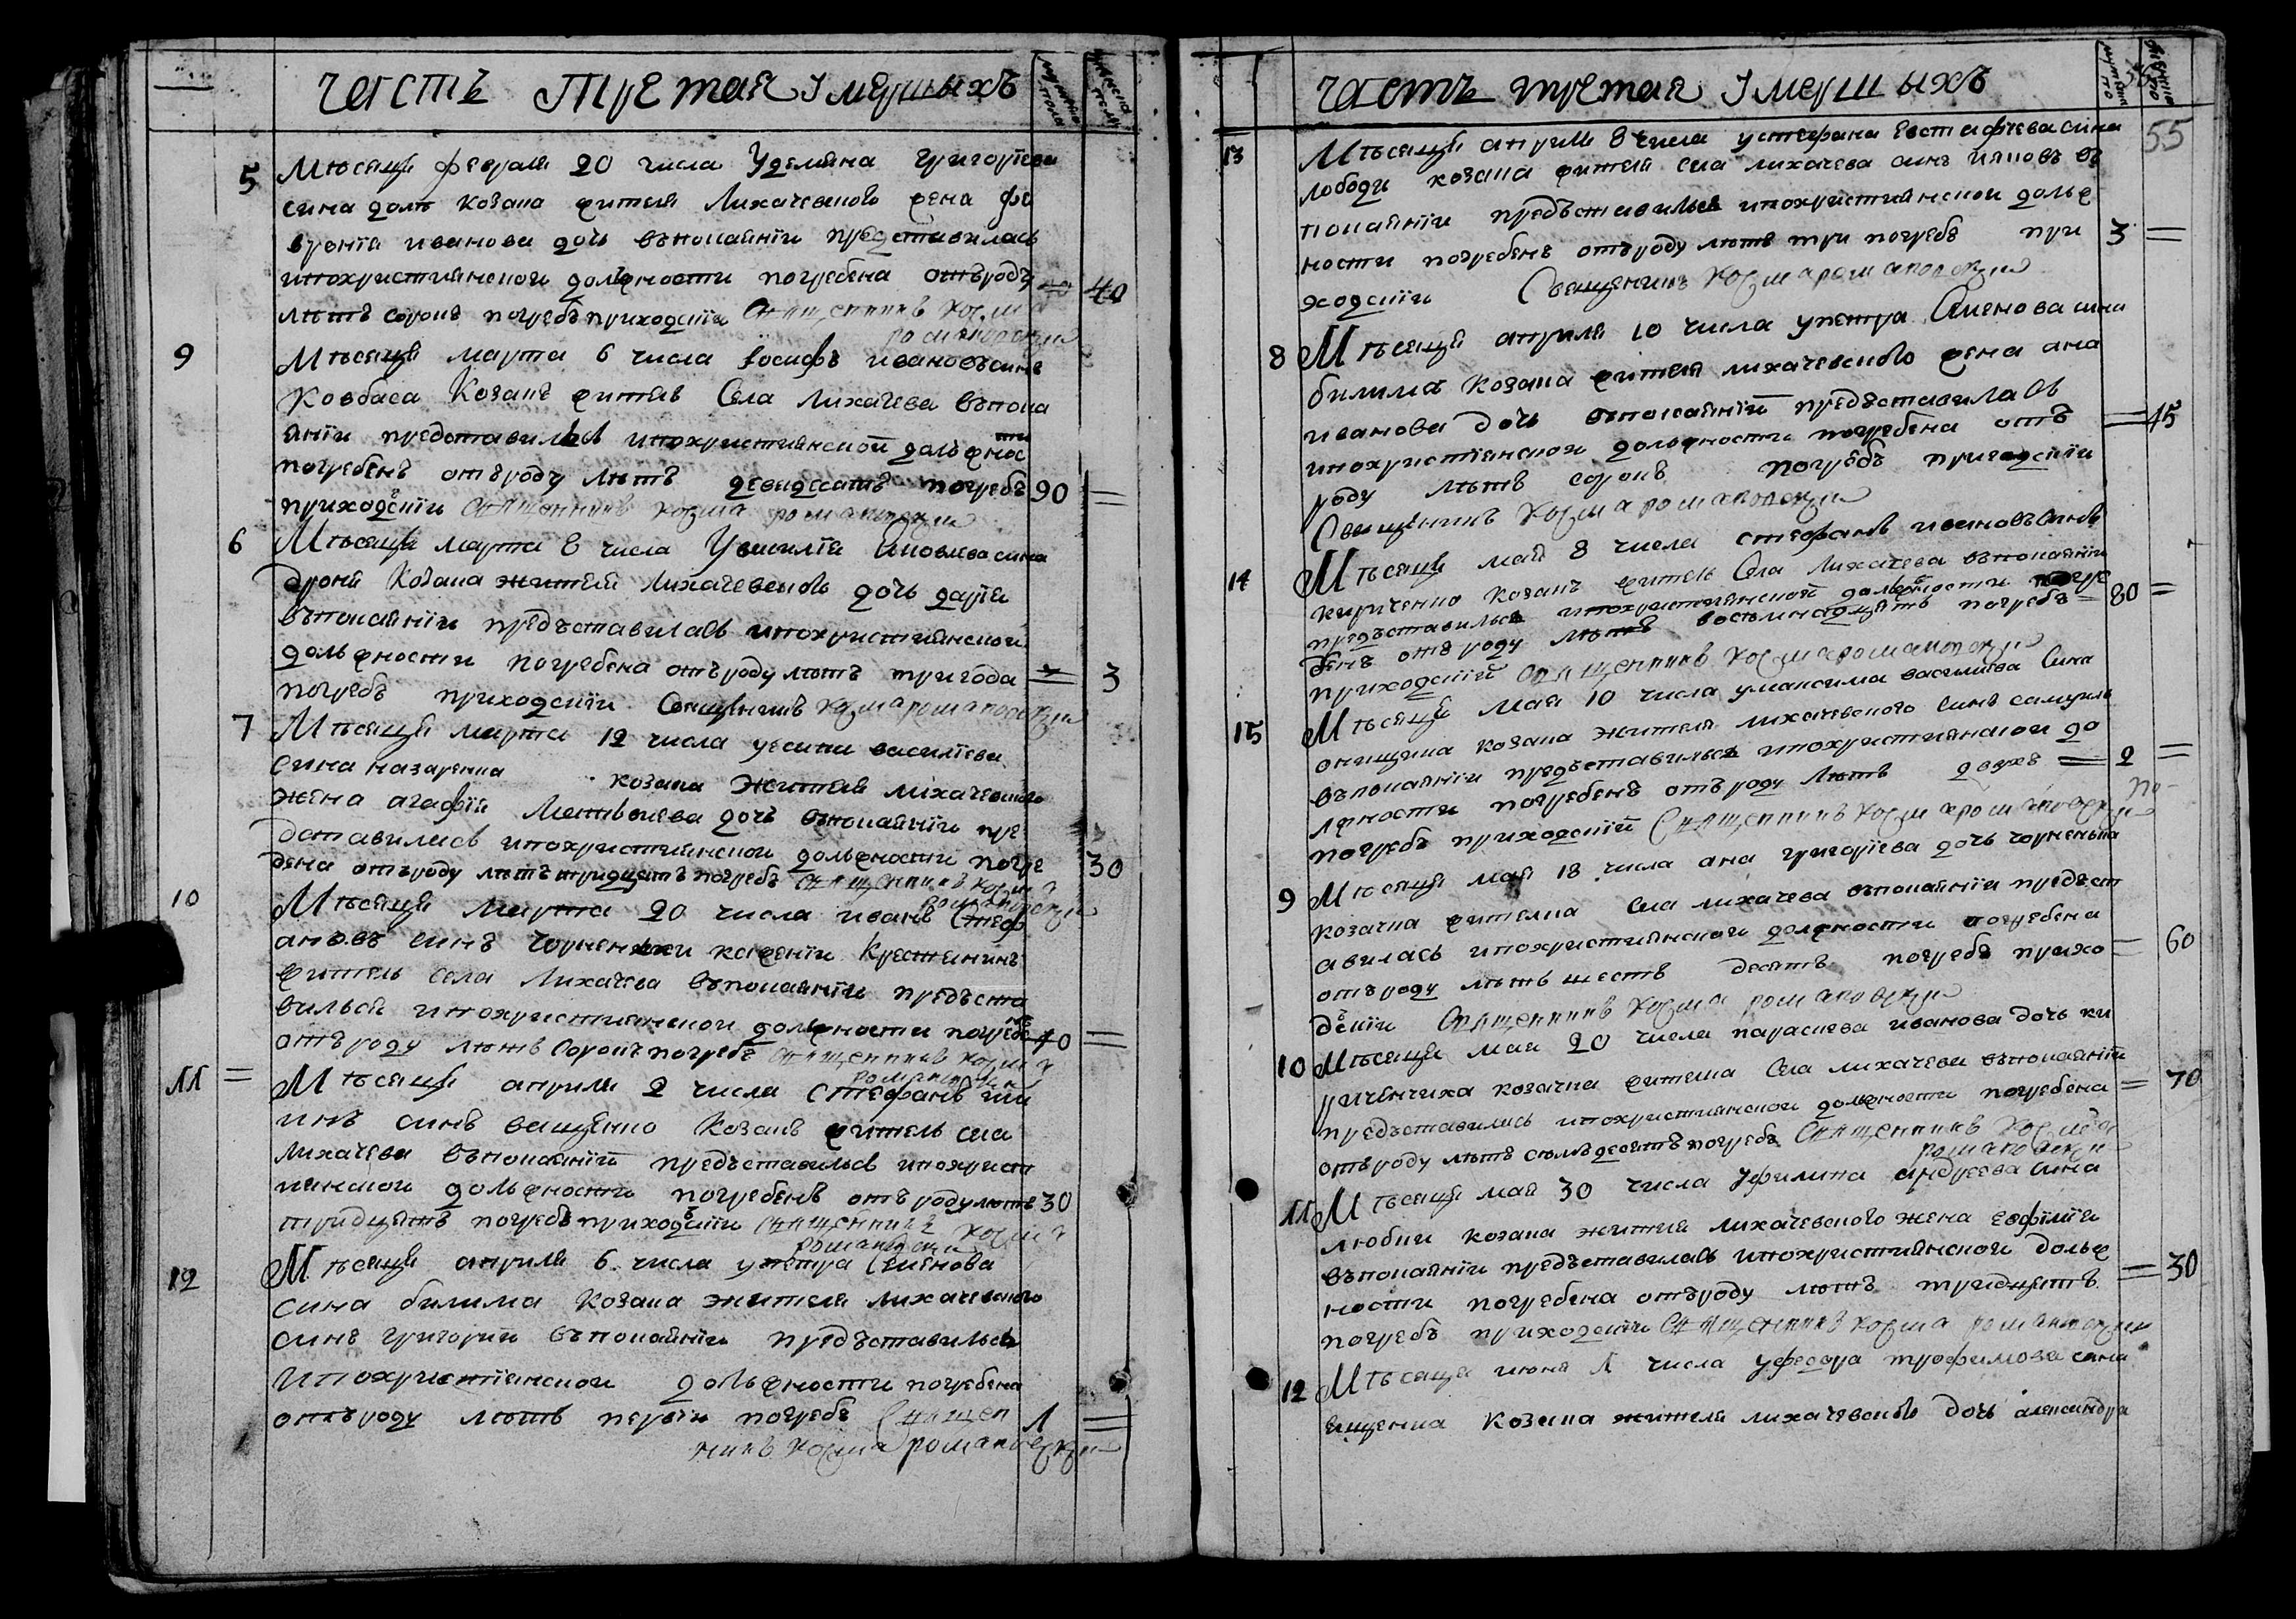 часть третая умершыхъ
мужеска пола
женска полу
5
Мѣсяца февраля 20 числа Удемяна григорiева
сина долѣ козака жителя Лихачевского жена фе
вронiя иванова дочь въпокаянiи представилась
ипохристиянской должности погребена отъроду
40
лѣтъ сорокъ погребъ приходскiи Священникъ козма
романовскии
9
Мѣсяца марта 6 числа Иосифъ ивановъсинъ
Ковбаса Козакъ житель Села Лихачева въпока
янiи представилься ипохристиянской должнос
ти
погребенъ отъроду лѣтъ девидесатъ погребъ
90
приходскiи Священникъ козма романовскии
6
Мѣсяца марта 8 числа Увасилiя Яковлева сина
дроня Козака жителя лихачевского дочь дарiя
въпокаянiи предъставилась ипохристиянской
должности погребена отъроду лѣтъ тригода
3
погребъ приходскiи Священникъ козма романовскии
7
Мѣсяца марта 12 числа уесипа василiева
сина назаренка козака жителя лихачевского
жена агафiя Матвѣева дочь въпокаянiи пре
дставилась ипохристиянской должности погре
бена отъроду лѣтъ тридцать погребъ священникъ козма
30
романовскии
10
Мѣсяца марта 20 числа иванъ Стеф
ановъ синъ Чорненкии казенiи Крестянинъ
житель села Лихачева въпокаянiи предъста
вилься ипохристиянской должности погребе
нъ
отъроду лѣтъ Сорокъ погребъ священникъ козма
40
романовскии
11
Мѣсяца априля 2 числа Стефанъ
инъ синъ ващенко Козакъ житель села
лихачева въпокаянiи предъставилься ипохрист
иянской должности погребенъ отъроду лѣтъ
30
тридцатъ погребъ приходскiи священникъ козма
романовскии
12
Мѣсяца априля 6 числа упетра Семенова
сина билима Козака жителя лихачевского
синъ григории въпокаянiи предъставилься
ипохристиянской должности погребенъ
отъроду лѣтъ первiи погребъ Священ
1
никъ козма романовскии
часть третая умершыхъ
55
13
Мѣсяца априля 8 числа устефана Евстафiева сина
лободи козака жителя села лихачева синъ Яковъ въ
покаянiи предъставилься ипохристиянской долж
ности погребенъ отъроду лѣтъ три погребъ при
3
ходскiи Священникъ козма романовскии
8
Мѣсяца априля 10 числа упетра Семенова сина
билима козака жителя лихачевского жена ана
иванова дочь въпокаянiи предъставилась
ипохристiянской должности погребена отъ
45
роду лѣтъ сорокъ погребъ приходскiи
Священникъ козма романовскии
14
Мѣсяца мая 8 числа стефанъ ивановъ синъ
кириченко козакъ житель Села Лихачева въпокаянiи
предъставилься ипохристиянской должности погре
бенъ отъроду лѣтъ восемнадцять погребъ
80
приходскiй Священникъ козма романовскии
15
Мѣсяца мая 10 числа умаксима василиева сина
онищина козака жителя лихачевского синъ самуилъ
въпокаянiи предъставилься ипохристиянской до
лжности погребенъ отъроду лѣтъ двухъ
2
погребъ приходскiй Священникъ козма романовскии
9
Мѣсяца мая 18 числа ана григорiева дочь чорненька
козачка жителка села лихачева въпокаянiи предъст
авилась ипохристиянской должности погребена
60
отъроду лѣтъ шестъ десятъ погребъ прихо
дскiи Священникъ козма романовскии
10
Мѣсяца мая 20 числа параскева иванова дочь ки
риченчиха козачка жителка Села лихачева въпокаянiи
предъставилась ипохристиянской должности погребена
70
отъроду лѣтъ семъдесятъ погребъ Священникъ козма
романовскии
11
Мѣсяца мая 30 числа Уфилипа андреева сина
любки козака жителя лихачевского жена евфимiя
въпокаянiи предъставилась ипохристиянской долж
ности погребена отъроду лѣтъ тридцетъ
30
погребъ приходскiи Священникъ козма романовскии
12
Мѣсяца июня 1 числа уфедора трофимова сина
ващенка козака жителя лихачевского дочь александра